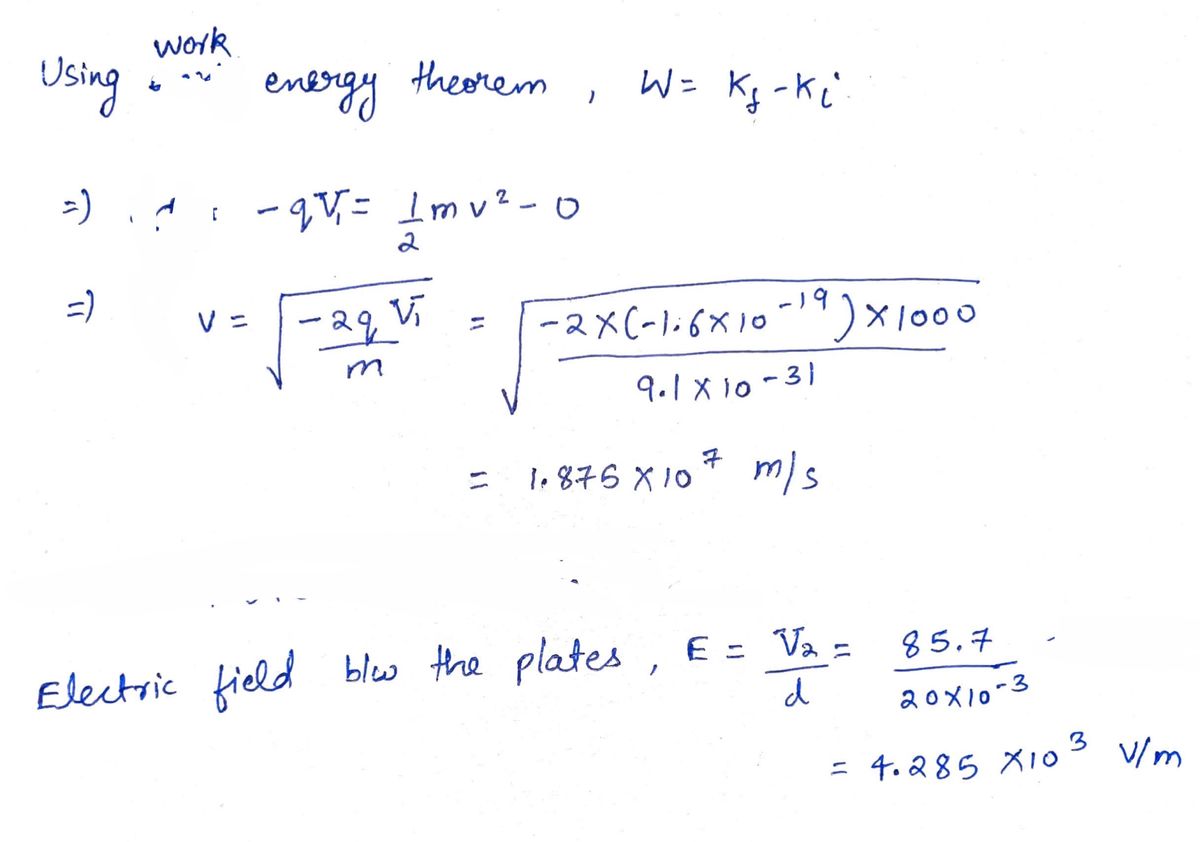 Using work energy theorem , W = Kf - Ki
=) - qV1 = 1/2 m v² - 0
=) v = √(-2q V1 / m) = √(-2 × (-1.6 × 10^-19) × 1000 / 9.1 × 10^-31)
= 1.875 × 10^7 m/s
Electric field b/w the plates , E = V2/d = 85.7 / 20×10^-3
= 4.285 × 10^3 V/m